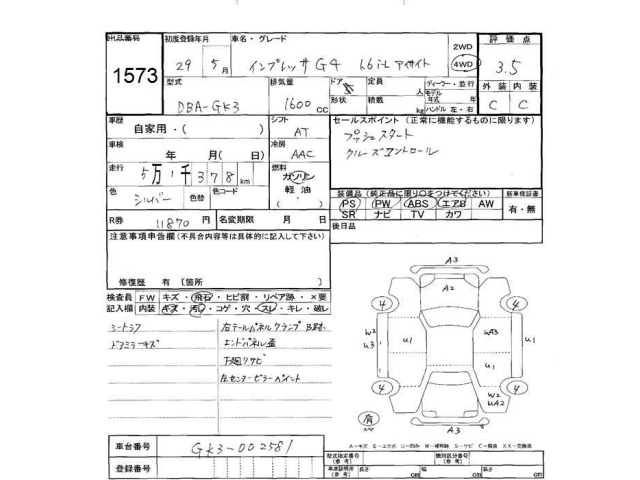 出品番号 初度登録年月 車名・グレード 2WD 評価点
1573 29 5月 インプレッサ G4 1.6i-L アイサイト 4WD 3.5
型式 排気量 ドア 定員 人 ディーラー・並行 外装 内装
DBA-GK3 1600cc 形状 積載 kg モデル年式 年 ハンドル 左・右 C C
車歴 自家用・( ) シフト AT セールスポイント (正常に機能するものに限ります)
車検 年 月( 日) 冷房 AAC プッシュスタート
走行 5万1千378km 燃料 ガソリン 軽油 クルーズコントロール
色 シルバー 色替 色コード
装備品 (純正品に限り○をつけてください) 新車保証書
PS PW ABS エアB AW 有・無
SR ナビ TV カワ
R券 11870円 名変期限 月 日 後日品
注意事項申告欄(不具合内容等は具体的に記入して下さい)
修復歴 有 〔箇所 〕
検査員 FW キズ・飛石・ヒビ割・リペア跡・×要
記入欄 内装 キズ・汚レ・コゲ・穴・スレ・キレ・破レ
シートスア 右テールパネルクランプ B封
ドアミラーキズ エンドパネル歪
下廻リサビ
左センターピラーペイント
A3
A2
4 4
W2
U3 U1 UA3
U1
4 4
W2
UA2
有
A3
A-キズ E-エクボ U-凹ミ W-補修跡 S-サビ C-腐食 XX-交換済
車台番号 GK3-002581
登録番号
型式指定番号(参考) 類別区分番号(参考)
車庫証明用(参考) 長さ cm 幅 cm 高さ cm